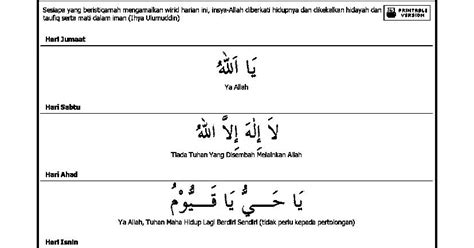 Sesiapa yang beristiqamah mengamalkan wirid harian ini, insya-Allah diberkati hidupnya dan dikekalkan hidayah dan
taufiq serta mati dalam iman (Ihya Ulumuddin)
PRINTABLE
VERSION
Hari Jumaat
يَا اَللهُ
Ya Allah
Hari Sabtu
لاَ إِلَهَ إِلاَّ اللهُ
Tiada Tuhan Yang Disembah Melainkan Allah
Hari Ahad
يَا حَـــيُّ يَا قَـــيُّوْمُ
Ya Allah, Tuhan Maha Hidup Lagi Berdiri Sendiri (tidak perlu kepada pertolongan)
Hari Isnin